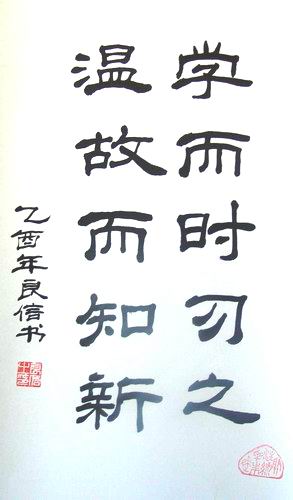 学而时习之
温故而知新
乙酉年良信书